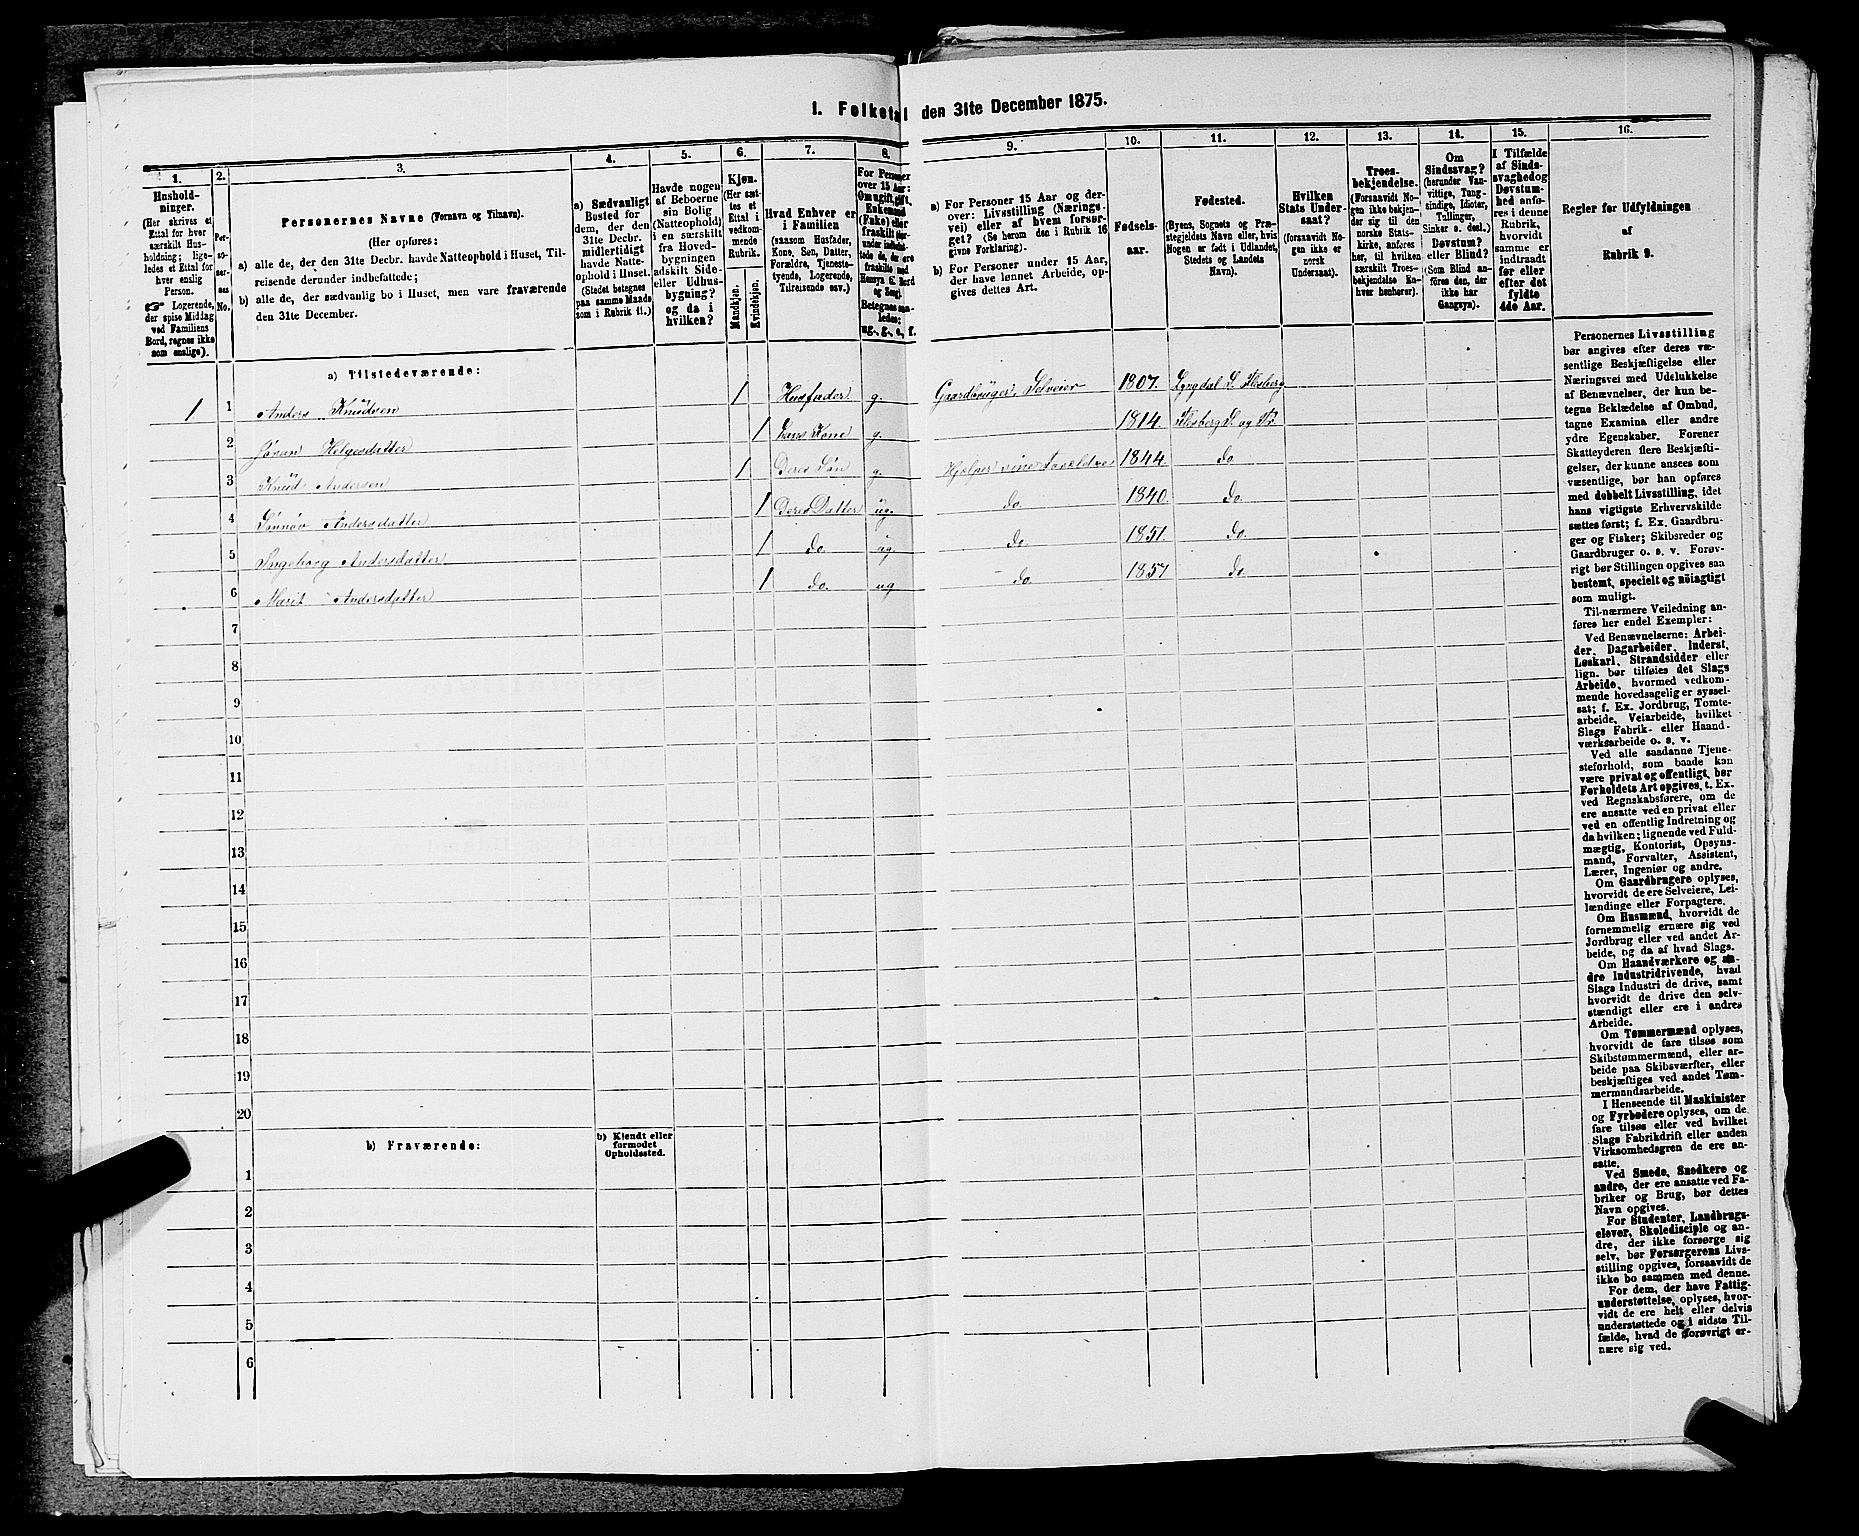 1. Folketal den 31te December 1875.
1. 2. 3. 4. 5. 6. 7. 8. 9. 10. 11. 12. 13. 14. 15. 16.
Hushold-
ninger.
(Her skrives et
Ettal for hver
særskilt Hus-
holdning; lige-
ledes et Ettal for
hver enslig
Person.
☞ Logerende,
der spise Middag
ved Familiens
Bord, regnes ikke
som enslige).
Per-
so-
ner-
nes
No.
Personernes Navne (Fornavn og Tilnavn).
(Her opføres:
a) alle de, der den 31te Decbr. havde Natteophold i Huset, Til-
reisende derunder indbefattede;
b) alle de, der sædvanlig bo i Huset, men vare fraværende
den 31te December.
a) Sædvanligt
Bosted for
dem, der den
31te Decbr.
midlertidigt
havde Natte-
ophold i Huset.
(Stedet betegnes
paa samme Maade
som i Rubrik 11.)
Havde nogen
af Beboerne
sin Bolig
(Natteophold)
i en særskilt
fra Hoved-
bygningen
adskilt Side-
eller Udhus-
bygning?
og da i
hvilken?
Kjøn.
(Her sæt-
tes et
Ettal i
vedkom-
mende
Rubrik.
Mandkjøn.
Kvindekjøn.
Hvad Enhver er
i Familien
(saasom Husfader,
Kone, Søn, Datter,
Forældre, Tjeneste-
tyende, Logerende,
Tilreisende osv.)
For Personer
over 15 Aar:
Om ugift, gift,
Enkemand
(Enke) eller
fraskilt
Betegnes saa-
ledes:
ug., g., e., f.
a) For Personer 15 Aar og der-
over: Livsstilling (Nærings-
vei) eller af hvem forsør-
get? (Se herom den i Rubrik 16
givne Forklaring).
b) For Personer under 15 Aar,
der have lønnet Arbeide, op-
gives dettes Art.
Fødsels-
aar.
Fødested.
(Byens, Sognets og Præ-
stegjeldets Navn eller, hvis
Nogen er født i Udlandet,
Stedets og Landets
Navn).
Hvilken
Stats Under-
saat?
(forsaavidt No-
gen ikke er
norsk
Undersaat).
Troes-
bekjendelse.
(Forsaavidt No-
gen ikke bekjen-
der sig til den
norske Stats-
kirke, anføres
her, til hvilken
særskilt Troes-
bekjendelse En-
hver henhører).
Om
Sindssvag?
(herunder Van-
vittige, Tung-
sindige, Idioter,
Tullinger,
Sinker o. desl.)
Døvstum?
eller Blind?
(Som Blind an-
føres den, der
ikke har
Gangsyn).
I Tilfælde
af Sinds-
svaghed og
Døvstum-
hed anfø-
res i denne
Rubrik,
hvorvidt
samme er
indtraadt
før eller
efter det
fyldte
4de Aar.
Regler for Udfyldningen
af
Rubrik 9.
a) Tilstedeværende:
1 1 Anders Knudsen 1 Husfader g. Gaardbruger, Selveier 1807. Lyngdal S. Flesberg
2 Jøran Helgesdatter 1 Hans Kone g. 1814. Flesberg S. og Pr.
3 Knud Andersen 1 Deres Søn g. Hjelper sine Foreldre 1844. do
4 Sønnøv Andersdatter 1 Deres Datter ug. do. 1840. do.
5 Ingeborg Andersdatter 1 do. ug. do. 1851. do.
6 Marit Andersdatter 1 do. ug do. 1857 do.
7
8
9
10
11
12
13
14
15
16
17
18
19
20
b) Fraværende:
b) Kjendt eller
formodet
Opholdssted.
1
2
3
4
5
6
Personernes Livsstilling
bør angives efter deres væ-
sentlige Beskjæftigelse eller
Næringsvei med Udelukkelse
af Benævnelser, der kun be-
tegne Beklædelse af Ombud,
tagne Examina eller andre
ydre Egenskaber. Forener
Skatteyderen flere Beskjæfti-
gelser, der kunne ansees som
væsentlige, bør han opføres
med dobbelt Livsstilling, idet
hans vigtigste Erhvervskilde
sættes først; f. Ex. Gaardbru-
ger og Fisker; Skibsreder og
Gaardbruger o. s. v. Forøv-
rigt bør Stillingen opgives saa
bestemt, specielt og nöiagtigt
som muligt.
Til nærmere Veiledning an-
føres her endel Exempler:
Ved Benævnelserne: Arbei-
der, Dagarbeider, Inderst,
Løskarl, Strandsidder eller
lign. bør tilføies det Slags
Arbeide, hvormed vedkom-
mende hovedsagelig er syssel-
sat; f. Ex. Jordbrug, Tomte-
arbeide, Veiarbeide, hvilket
Slags Fabrik- eller Haand-
værksarbeide o. s. v.
Ved alle saadanne Tjene-
steforhold, som baade kan
være privat og offentligt, bør
Forholdets Art opgives, t. Ex.
ved Regnskabsførere, om de
ere ansatte ved en privat eller
ved en offentlig Indretning og
da hvilken; lignende ved Fuld-
mægtig, Kontorist, Opsyns-
mand, Forvalter, Assistent,
Lærer, Ingeniør og andre.
Om Gaardbrugere oplyses,
hvorvidt de ere Selveiere, Lei-
lændinge eller Forpagtere.
Om Husmænd, hvorvidt de
fornemmelig ernære sig ved
Jordbrug eller ved andet Ar-
beide, og da af hvad Slags.
Om Haandværkere og an-
dre Industridrivende, hvad
Slags Industri de drive, samt
hvorvidt de drive den selv-
stændigt eller ere i andres
Arbeide.
Om Tømmermænd oplyses,
hvorvidt de fare tilsøs som
Skibstømmermænd, eller ar-
beide paa Skibsværfter, eller
beskjæftiges ved andet Tøm-
mermandsarbeide.
I Henseende til Maskinister
og Fyrbødere oplyses, om de
fare tilsøs eller ved hvilket
Slags Fabrikdrift eller anden
Virksomhedsgren de ere an-
satte.
Ved Smede, Snedkere og
andre, der ere ansatte ved Fa-
briker og Brug, bør dettes
Navn opgives.
For Studenter, Landbrugs-
elever, Skoledisciple og an-
dre, der ikke forsørge sig
selv, bør Forsørgerens Livs-
stilling opgives, forsaavidt de
ikke bo sammen med denne.
For dem, der have Fattig-
understøttelse, oplyses, hvor-
vidt de ere helt eller delvis
understøttede og i sidste Til-
fælde, hvad de forøvrigt er-
nære sig ved.